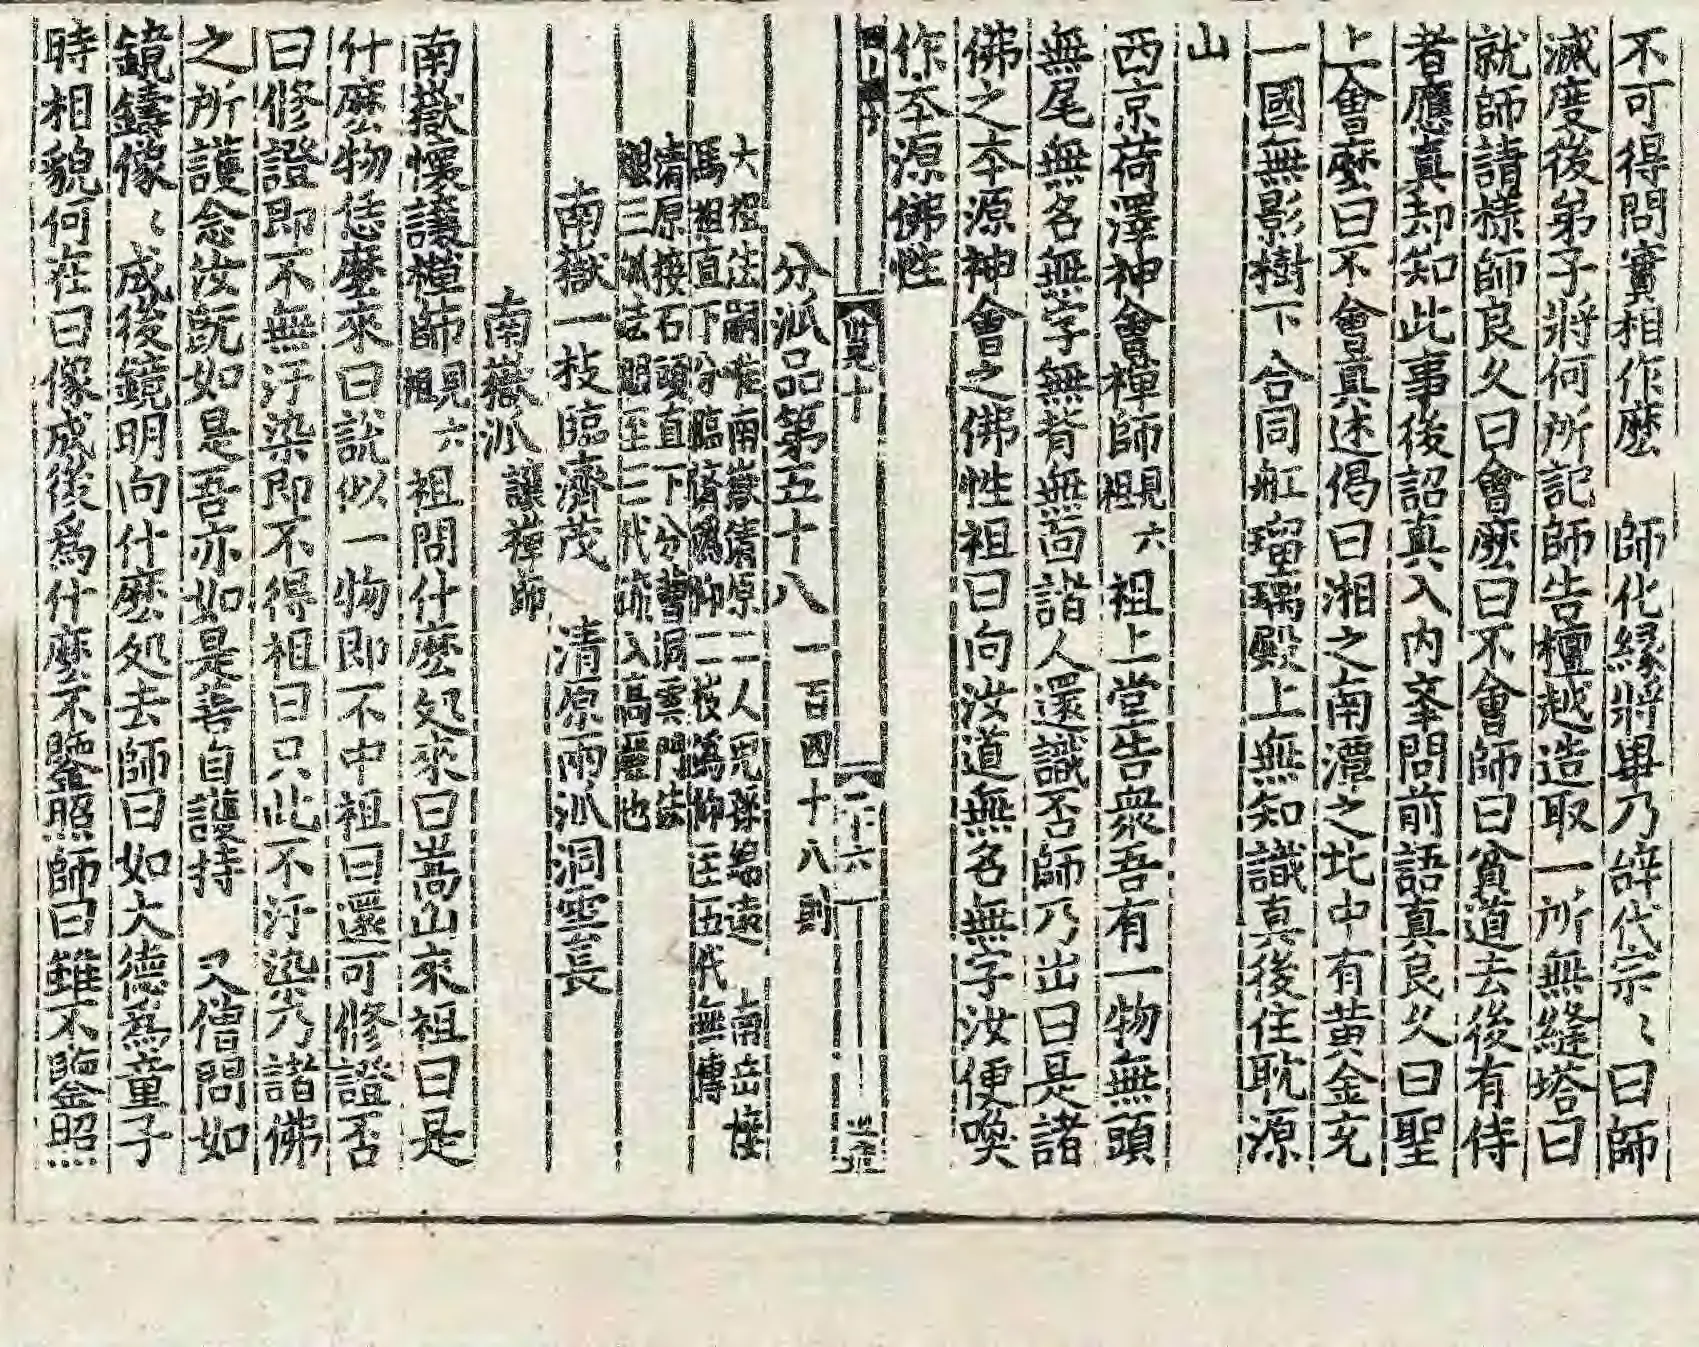 不可得問實相作麽　師化緣將畢乃辞代宗〻曰師
滅度後弟子將何所記師告檀越造取一所無縫塔曰
就師請樣師良久曰會麽曰不會師曰貧道去後有侍
者應真却知此事後詔真入内峯問前語真良久曰聖
上會麽曰不會真述偈曰湘之南潭之北中有黄金充
一國無影樹下合同舡瑠璃殿上無知識真後住耽源
山
西京荷澤神會禅師見六祖　祖上堂告衆吾有一物無頭
無尾無名無字無背無面諮人還識否師乃出曰是諸
佛之本源神會之佛性祖曰向汝道無名無字汝便喚
作本源佛性
十六
分派品第五十八　一百四十八則
六祖法嗣唯南嶽清原二人兒孫綿遠　南岳接
馬祖直下分臨濟溈仰二枝溈仰至五代無傳
清原接石頭直下分曹洞雲門法
眼三派法眼至三代流入高麗也
南嶽一枝臨濟茂　清原兩派洞雲長
南嶽派　讓禅師
南嶽懷讓禅師見六祖　祖問什麽処來曰嵩山來祖曰是
什麽物恁麽來曰説似一物即不中祖曰還可修證否
曰修證即不無汙染即不得祖曰只此不汙染乃諸佛
之所護念汝既如是吾亦如是善自護持　又僧問如
鏡鑄像〻成後鏡明向什麽処去師曰如大德爲童子
時相貌何在曰像成後爲什麽不鑒照師曰雖不鑒照